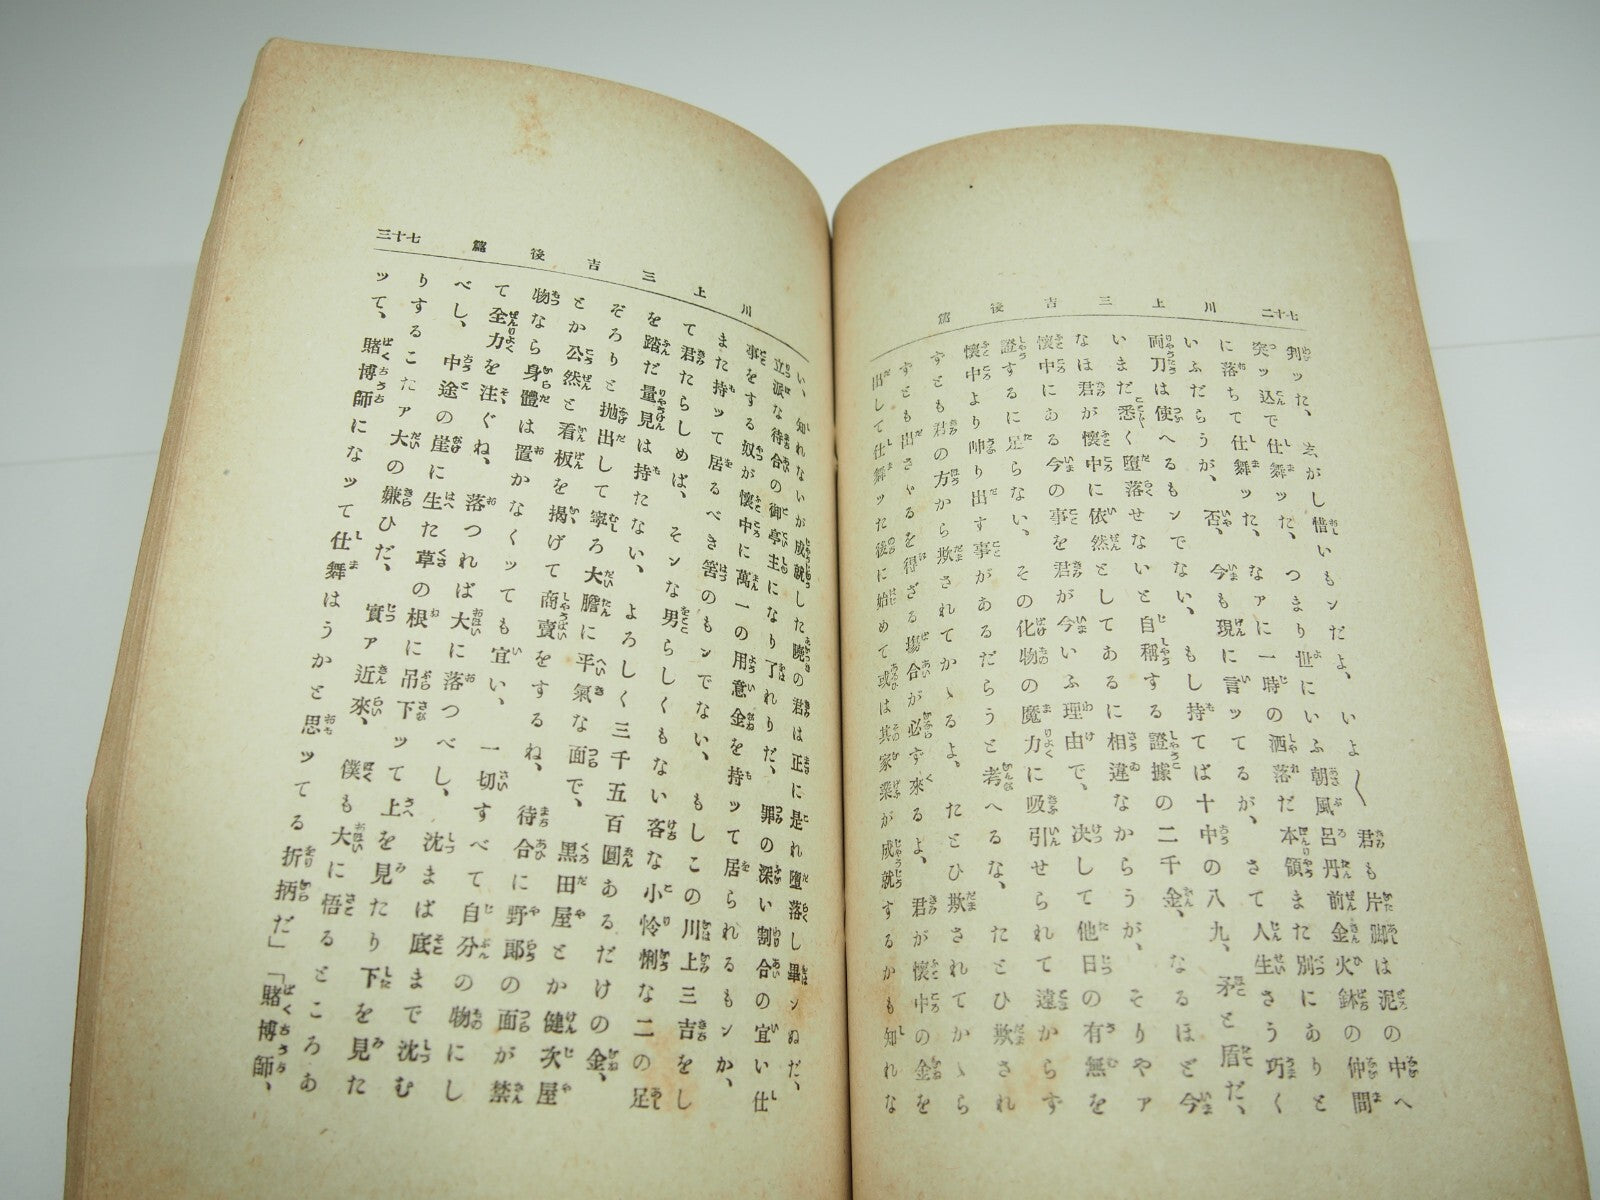 七十二
川上三吉後篇
判ッた、志がし惜いもンだよ、いよ〱君も片脚は泥の中へ
突ッ込で仕舞ッた、つまり世にいふ朝風呂丹前金火鉢の仲間
に落ちて仕舞ッた、なァに一時の洒落だ本領また別にありと
いふだらうが、否、今も現に言ッてるが、さて人生さう巧く
両刀は使へるもンでない、もし持てば十中の八九、矛と盾だ、
いまだ悉く墮落せないと自稱する證據の二千金、なるほど今
なほ君が懷中に依然としてあるに相違なからうが、そりやァ
懷中にある今の事を君が今いふ理由で、決して他日の有無を
證するに足らない、その化物の魔力に吸引せられて遠からず
懷中より出す事があるだらうと考へるな、たとひ欺され
ずとも君の方から欺されてかゝるよ。たとひ欺されてかゝら
ずとも出さゞるを得ざる塲合が必ず來るよ、君が懷中の金を
出して仕舞ッた後に始めて或は其家業が成就するかも知れな
川上三吉後篇
七十三
い、知れないが成就した曉の君は正に是れ墮落し畢ンぬだ、
立派な待合の御亭主になり了れりだ、罪の深い割合の宜い仕
事をする奴が懷中に萬一の用意金を持ッて居られるもンか、
また持ッて居るべき筈のもンでない、もしこの川上三吉をし
て君たらしめば、そンな男らしくもない吝な小怜悧な二の足
を踏だ量見は持たない、よろしく三千五百圓あるだけの金、
ぞろりと抛出して寧ろ大膽に平氣な面で、黒田屋とか健次屋
とか公然と看板を揭げて商賣をするね、待合に野郎の面が禁
物なら身體は置かなくッても宜い、一切すべて自分の物にし
て全力を注ぐね、落つれば大に落つべし、沈まば底まで沈む
べし、中途の崖に生た草の根に吊下ッて上を見たり下を見た
りするこたァ大の嫌ひだ、實ァ近來、僕も大に悟るところあ
ッて、賭博師になッて仕舞はうかと思ッてる折柄だ」「賭博師、